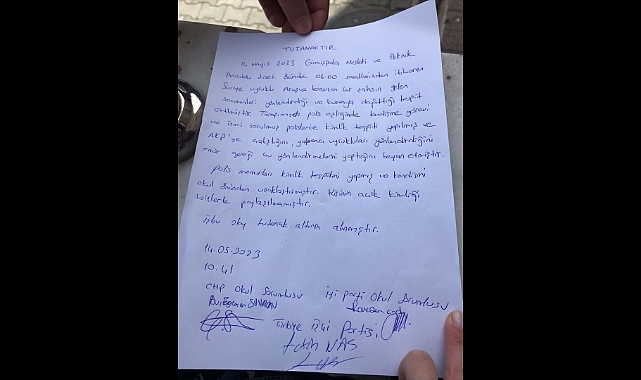 TUTANAKTIR
14 Mayıs 2023 Gümüşpala Mesleki ve Teknik
Anadolu Lisesi önünde 06.00 saatlerinden itibaren
Suriye uyruklu Arapça konuşan bir şahsın gelen
seçmenleri yönlendirdiği ve kumanya dağıttığı tespit
edilmiştir. polis eşliğinde kendisine görevi
ve ismi sorulmuş polislerce kimlik tespiti yapılmış ve
AKP'ye çalıştığını, yabancı uyrukluları yönlendirdiğini
gereği bu yönlendirmeleri yaptığını beyan etmiştir.
Polis memurları kimlik tespitini yapmış ve kendisini
okul önünden uzaklaştırmıştır. Kişinin açık kimliği
bizlerle paylaşılmamıştır.
İşbu olay tutanak altına alınmıştır.
14.05.2023
10.41
CHP Okul Sorumlusu İyi Parti Okul Sorumlusu
Türkiye İşçi Partisi
NAS